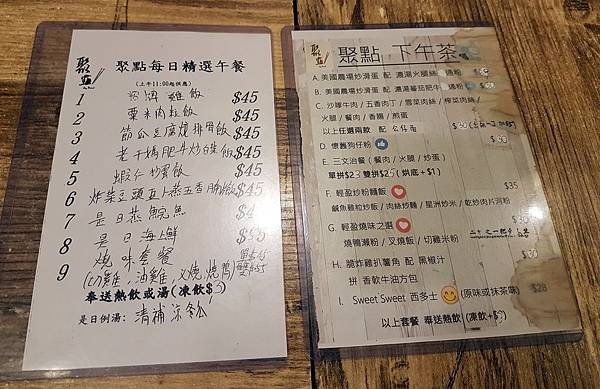 聚點
聚點每日精選午餐
(上午11:00起供應)
1 雞飯 $45
2 粟米肉粒飯 $45
3 節瓜豆腐燒排骨飯 $45
4 老干媽肥牛炒白菜飯 $45
5 蝦仁炒飯 $45
6 炸菜豆頭豆卜蒸五香腩飯 $45
7 是日蒸鯇魚
8 是日海上鮮
9 燒味套餐
(切雞,油雞,叉燒,燒鴨)
奉送熱飲或湯(凍飲$3)
是日例湯:清補涼
聚點
聚點 下午茶
A. 美國農場炒滑蛋 配 濃湯火腿絲 通粉
B. 美國農場炒滑蛋 配 濃湯蕃茄肥牛 通粉
C. 沙嗲牛肉 / 五香肉丁 / 雪菜肉絲 / 榨菜肉絲 /
火腿 / 餐肉 / 香腸 / 煎蛋
以上任選兩款 配 公仔麵
D. 懷舊狗仔粉
E. 三文治餐 ( 餐肉 / 火腿 / 炒蛋 )
單拼$23 雙拼$25 ( 烘底 +$1 )
F. 輕盈炒粉麵飯 $35
鹹魚雞粒炒飯 / 肉絲炒麵 / 星洲炒米 / 乾炒肉片河粉
G. 輕盈燒味之選 $30
燒鴨瀨粉 / 叉燒飯 / 切雞米粉
H. 脆炸雞扒薯角 配 黑椒汁
拼 香軟牛油方包
I. Sweet Sweet 西多士 (原味或抹茶味) $28
以上套餐 奉送熱飲 (凍飲+$3)